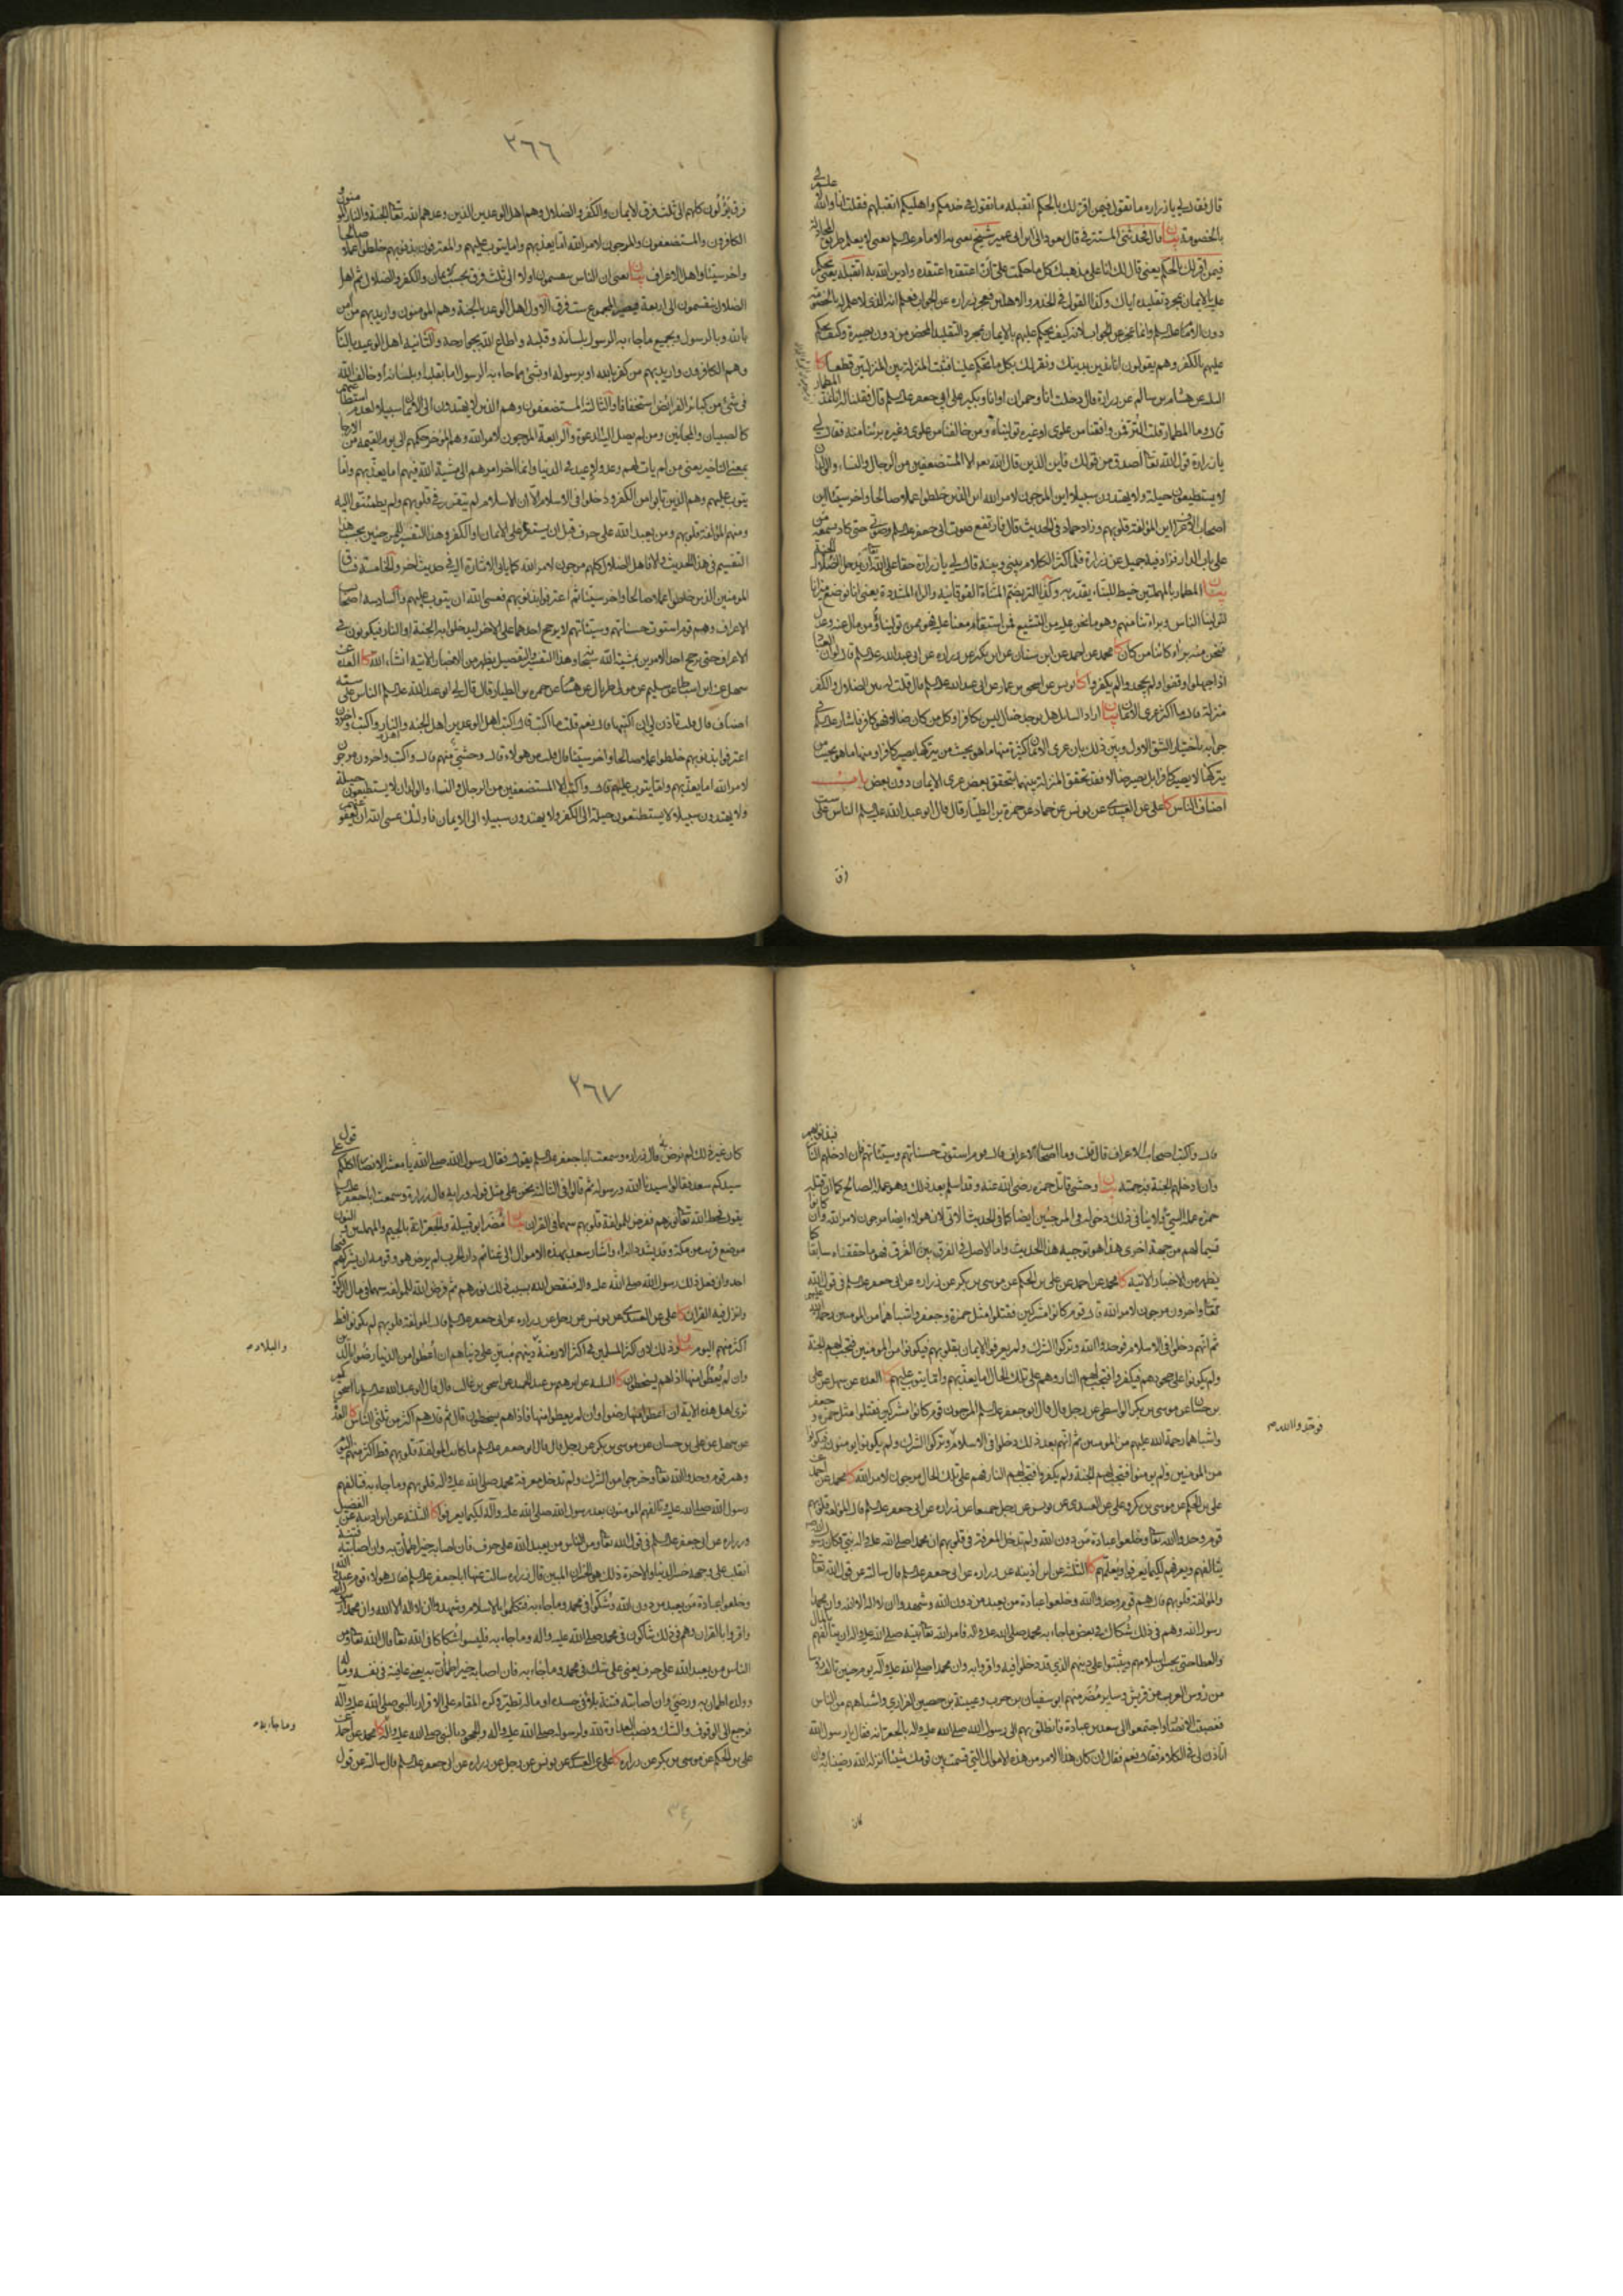 قال فقال لي يا زرارة ما تقول فيمن اقر لك بالحكم اتقبله ما تقول في خدمكم واهليكم اتقبلهم فقلت انا والله
علم لي
بالخصومة بيان قال فحدثني
فيمن اقر لك بالحكم يعني قال لك انا على مذهبك كل ما حكمت علي ان اعتقده اعتقده وادين الله به اتقبله يعني تحكم
عليه بالايمان بمجرد تقليده اياك وكذا القول في الخدم والاهلين فعجز زرارة عن الجواب فعلم انه الذي لا علم له بالخصومة
دون الامام عليه السلم وانما عجز عن الجواب لانه كيف يحكم عليهم بالايمان بمجرد التقليد المحض من دون بصيرة وكيف يحكم
عليهم بالكفر وهم يقولون انا ندين بدينك ونقر لك بكل ما تحكم علينا فثبت المنزلة بين المنزلتين قطعا كا
عن هشام بن سالم عن زرارة قال دخلت انا وحمران او انا وبكير على ابي جعفر عليه السلم قال فقلنا له انا نمد المطمار
قال وما المطمار قلت التر فمن وافقنا من علوي او غيره توليناه ومن خالفنا من علوي وغيره برئنا منه فقال لي
يا زرارة قول الله تعالى اصدق من قولك فاين الذين قال الله تعالى الا المستضعفين من الرجال والنساء والولدان
لا يستطيعون حيلة ولا يهتدون سبيلا اين المرجون لامر الله اين الذين خلطوا عملا صالحا واخر سيئا اين
اصحاب الاعراف اين المؤلفة قلوبهم وزاد حماد في الحديث قال فارتفع صوت ابي جعفر عليه السلم وصوتي حتى كاد يسمعه من
على باب الدار وزاد فيه جميل عن زرارة فلما كثر الكلام بيني وبينه قال لي يا زرارة حقا على الله ان يدخل الضلال الجنة
بيان المطمار بالمهملتين خيط للبناء يقدر به وكذا التر بضم المثناة الفوقانية والراء المشددة يعني انا نوضع ميزانا
لتولينا الناس وبراءتنا منهم وهو ما نحن عليه من التشيع فمن استقام معنا عليه فهو ممن توليناه ومن مال عنه وعدل
فنحن منه براء كائنا من كان كا محمد عن احمد عن ابن سنان عن ابن بكير عن زرارة عن ابي عبد الله عليه السلم قال لو ان العباد
اذا جهلوا وقفوا ولم يجحدوا لم يكفروا كا
منزلة قال ما اكثر عرى الايمان بيان اراد السائل هل يوجد ضال ليس بكافر او كل من كان ضالا فهو كافر فاشار عليه السلم في
جوابه باختيار الشق الاول وبين ذلك بان عرى الايمان كثيرة منها ما هو بحيث من يتركها يصير كافرا ومنها ما هو بحيث من
يتركها لا يصير كافرا بل يصير ضالا فقد تحقق المنزلة بينهما بتحقق بعض عرى الايمان دون بعض باب
اصناف الناس كا علي عن العبيدي عن يونس عن حماد عن حمزة بن الطيار قال قال ابو عبد الله عليه السلم الناس على ست
فرق
٢٦٦
فرق يؤلون كلهم الى ثلث فرق الايمان والكفر والضلال وهم اهل الوعدين الذين وعدهم الله تعالى الجنة والنار المؤمنون و
الكافرون والمستضعفون والمرجون لامر الله اما يعذبهم واما يتوب عليهم والمعترفون بذنوبهم خلطوا عملا صالحا
واخر سيئا واهل الاعراف بيان يعني ان الناس ينقسمون اولا الى ثلث فرق بحسب الايمان والكفر والضلال ثم اهل
الضلال ينقسمون الى اربعة فيصير المجموع ست فرق الاول اهل الوعد بالجنة وهم المؤمنون واريد بهم من امن
بالله وبالرسول وبجميع ما جاء به الرسول بلسانه وقلبه واطاع الله بجوارحه والثانية اهل الوعيد بالنار
وهم الكافرون واريد بهم من كفر بالله او برسوله او بشئ مما جاء به الرسول اما بقلبه او بلسانه او خالف الله
في شئ من كبائر الفرائض استخفافا والثالثة المستضعفون وهم الذين لا يهتدون الى الايمان سبيلا لعدم استطاعتهم
كالصبيان والمجانين ومن لم يصل اليه الدعوة والرابعة المرجون لامر الله وهم المؤخر حكمهم الى يوم القيمة من الارجاء
بمعنى التاخير يعني من لم يات لهم وعد ولا وعيد في الدنيا وانما اخر امرهم الى مشية الله فيهم اما يعذبهم واما
يتوب عليهم وهم الذين تابوا من الكفر ودخلوا في الاسلام الا ان الاسلام لم يتقرر في قلوبهم ولم يطمئنوا اليه
ومنهم المؤلفة قلوبهم ومن يعبد الله على حرف قبل ان يستقر على الايمان او الكفر وهذا التفسير للمرجين بحسب هذا
التقسيم في هذا الحديث والا فاهل الضلال كلهم مرجون لامر الله كما ياتي الاشارة اليه في حديث اخر والخامسة فساق
المؤمنين الذين خلطوا عملا صالحا واخر سيئا ثم اعترفوا بذنوبهم فعسى الله ان يتوب عليهم والسادسة اصحاب
الاعراف وهم قوم استوت حسناتهم وسيئاتهم لا يرجح احدهما على الاخر ليدخلوا به الجنة او النار فيكونون في
الاعراف حتى يرجح احد الامرين بمشية الله سبحانه وهذا التفسير والتفصيل يظهر من الاخبار الاتية انشاء الله كا العدة عن
سهل عن ابن اسباط عن سليم عن مولى طربال عن هشام عن حمزة بن الطيار قال قال لي ابو عبد الله عليه السلم الناس على ستة
اصناف قال قلت تاذن لي ان اكتبها قال نعم قلت ما اكتب قال اكتب اهل الوعدين اهل الجنة واهل النار واكتب واخرون
اعترفوا بذنوبهم خلطوا عملا صالحا واخر سيئا قال قلت من هولاء قال وحشي منهم قال واكتب واخرون مرجون
لامر الله اما يعذبهم واما يتوب عليهم قال واكتب الا المستضعفين من الرجال والنساء والولدان لا يستطيعون حيلة
ولا يهتدون سبيلا لا يستطيعون حيلة الى الكفر ولا يهتدون سبيلا الى الايمان فاولئك عسى الله ان يعفو عنهم
قال واكتب اصحاب الاعراف قال قلت وما اصحاب الاعراف قال قوم استوت حسناتهم وسيئاتهم فان ادخلهم النار فبذنوبهم
وان ادخلهم الجنة فبرحمته بيان وحشي قاتل حمزة رضي الله عنه وقد اسلم بعد ذلك وهو عمله الصالح كما ان قتله
حمزة عمله السيئ ولا ينافي ذلك دخوله في المرجئين ايضا كما في الحديث الاتي لان هولاء ايضا مرجون لامر الله وان كانوا
قسيما لهم من جهة اخرى هذا هو توجيه هذا الحديث واما الاصل في الفرق بين الفرق فهو ما حققناه سابقا كما
يظهر من الاخبار الاتية كا محمد عن احمد عن علي بن الحكم عن موسى بن بكر عن زرارة عن ابي جعفر عليه السلم في قول الله
تعالى واخرون مرجون لامر الله قال قوم كانوا مشركين فقتلوا مثل حمزة وجعفر واشباههما من المؤمنين رحمة الله عليهم
ثم انهم دخلوا في الاسلام فوحدوا الله وتركوا الشرك ولم يعرفوا الايمان بقلوبهم فيكونوا من المؤمنين فتجب لهم الجنة
ولم يكونوا على جحودهم فيكفروا فتجب لهم النار وهم على تلك الحال اما يعذبهم واما يتوب عليهم كا العدة عن سهل عن علي
بن حسان عن موسى بن بكر الواسطي عن رجل قال قال ابو جعفر عليه السلم المرجون قوم كانوا مشركين فقتلوا مثل حمزة وجعفر
واشباههما رحمة الله عليهم من المؤمنين ثم انهم بعد ذلك دخلوا في الاسلام وتركوا الشرك ولم يكونوا يؤمنون فيكونوا
فوحدوا الله م
من المؤمنين ولم يؤمنوا فتجب لهم الجنة ولم يكفروا فتجب لهم النار فهم على تلك الحال مرجون لامر الله كا محمد عن احمد عن
علي بن الحكم عن موسى بن بكر وعلي عن العبيدي عن يونس عن رجل جميعا عن زرارة عن ابي جعفر عليه السلم قال المؤلفة قلوبهم
قوم وحدوا الله تعالى وخلعوا عبادة من دون الله ولم تدخل المعرفة في قلوبهم ان محمدا صلى الله عليه واله نبي وكان رسول الله
يتالفهم ويعرفهم لكيما يعرفوا ويعلمهم كا الثلثة عن ابن اذينة عن زرارة عن ابي جعفر عليه السلم قال سالته عن قول الله تعالى
والمؤلفة قلوبهم قال هم قوم وحدوا الله وخلعوا عبادة من يعبد من دون الله وشهدوا ان لا اله الا الله وان محمدا
رسول الله وهم في ذلك شكاك في بعض ما جاء به محمد صلى الله عليه واله فامر الله تعالى نبيه صلى الله عليه واله ان يتالفهم بالمال
والعطا حتى يحسن اسلامهم ويثبتوا على دينهم الذي قد دخلوا فيه واقروا به وان محمدا صلى الله عليه واله يوم حنين تالف رؤسا
من رؤس العرب من قريش وساير مضر منهم ابو سفيان بن حرب وعيينة بن حصين الفزاري واشباههم من الناس
فغضبت الانصار واجتمعوا الى سعد بن عبادة فانطلق بهم الى رسول الله صلى الله عليه واله بالجعرانة فقال يا رسول الله
اتاذن لي في الكلام فقال نعم فقال ان كان هذا الامر من هذه الاموال التي قسمت بين قومك شيئا انزله الله رضينا به وان
كان
٢٦٧
كان غير ذلك لم نرض قال زرارة وسمعت ابا جعفر عليه السلم يقول فقال رسول الله صلى الله عليه واله يا معشر الانصار اكلكم على قول
سيدكم سعد فقالوا سيدنا الله ورسوله ثم قالوا في الثالثة نحن على مثل قوله ورايه قال زرارة وسمعت ابا جعفر عليه السلم
يقول فحط الله تعالى نورهم ففرض للمؤلفة قلوبهم سهما في القران بيان مضر ابو قبيلة والجعرانة بالجيم والمهملتين
موضع قريب من مكة وقد يشدد الراء واشار سعد بهذه الاموال الى غنائم دار الحرب لم يرض هو وقومه ان يشركهم فيها
احد وان فعل ذلك رسول الله صلى الله عليه واله فنقص الله بسبب ذلك نورهم ثم فرض الله للمؤلفة سهما في مال الزكوة
وانزل فيه القران كا علي عن العبيدي عن يونس عن رجل عن زرارة عن ابي جعفر عليه السلم قال المؤلفة قلوبهم لم يكونوا قط
اكثر منهم اليوم بيان وذلك لان اكثر المسلمين في اكثر الازمنة دينهم مبتن على دنياهم ان اعطوا من الدنيا رضوا بالدين
والبلاد م
وان لم يعطوا منها اذا هم يسخطون كا الثلثة عن ابرهيم بن عبد الحميد عن اسحق بن غالب قال قال ابو عبد الله عليه السلم يا اسحق كم
ترى اهل هذه الاية ان اعطوا منها رضوا وان لم يعطوا منها فاذا هم يسخطون قال ثم قال هم اكثر من ثلثي الناس كا العدة
عن سهل عن علي بن حسان عن موسى بن بكر عن رجل قال قال ابو جعفر عليه السلم ما كانت المؤلفة قلوبهم قط اكثر منهم اليوم
وهم قوم وحدوا الله تعالى وخرجوا من الشرك ولم تدخل معرفة محمد صلى الله عليه واله قلوبهم وما جاء به فتالفهم
رسول الله صلى الله عليه واله وتالفهم المؤمنون بعد رسول الله صلى الله عليه واله لكيما يعرفوا كا الثلثة عن ابن اذينة عن الفضيل
وزرارة عن ابي جعفر عليه السلم في قول الله تعالى ومن الناس من يعبد الله على حرف فان اصابه خير اطمأن به وان اصابته فتنة
انقلب على وجهه خسر الدنيا والاخرة ذلك هو الخسران المبين قال زرارة سالت عنها ابا جعفر عليه السلم فقال هولاء قوم عبدوا الله
وخلعوا عبادة من يعبد من دون الله وشكوا في محمد وما جاء به فتكلموا بالاسلام وشهدوا ان لا اله الا الله وان محمدا رسول الله
واقروا بالقران وهم في ذلك شاكون في محمد صلى الله عليه واله وما جاء به فليسوا شكاكا في الله تعالى قال الله تعالى ومن
الناس من يعبد الله على حرف يعني على شك في محمد وما جاء به فان اصابه خير اطمأن به يعني عافية في نفسه وماله
وولده اطمان به ورضي وان اصابته فتنة بلاء في جسده او ماله تطير وكره المقام على الاقرار بالنبي صلى الله عليه واله
فرجع الى الوقوف والشك ونصب العداوة لله ولرسوله صلى الله عليه واله والجحود بالنبي صلى الله عليه واله كا محمد عن احمد عن
وما جاء به م
علي بن الحكم عن موسى بن بكر عن زرارة كا علي عن العبيدي عن يونس عن رجل عن زرارة عن ابي جعفر عليه السلم قال سالته عن قول